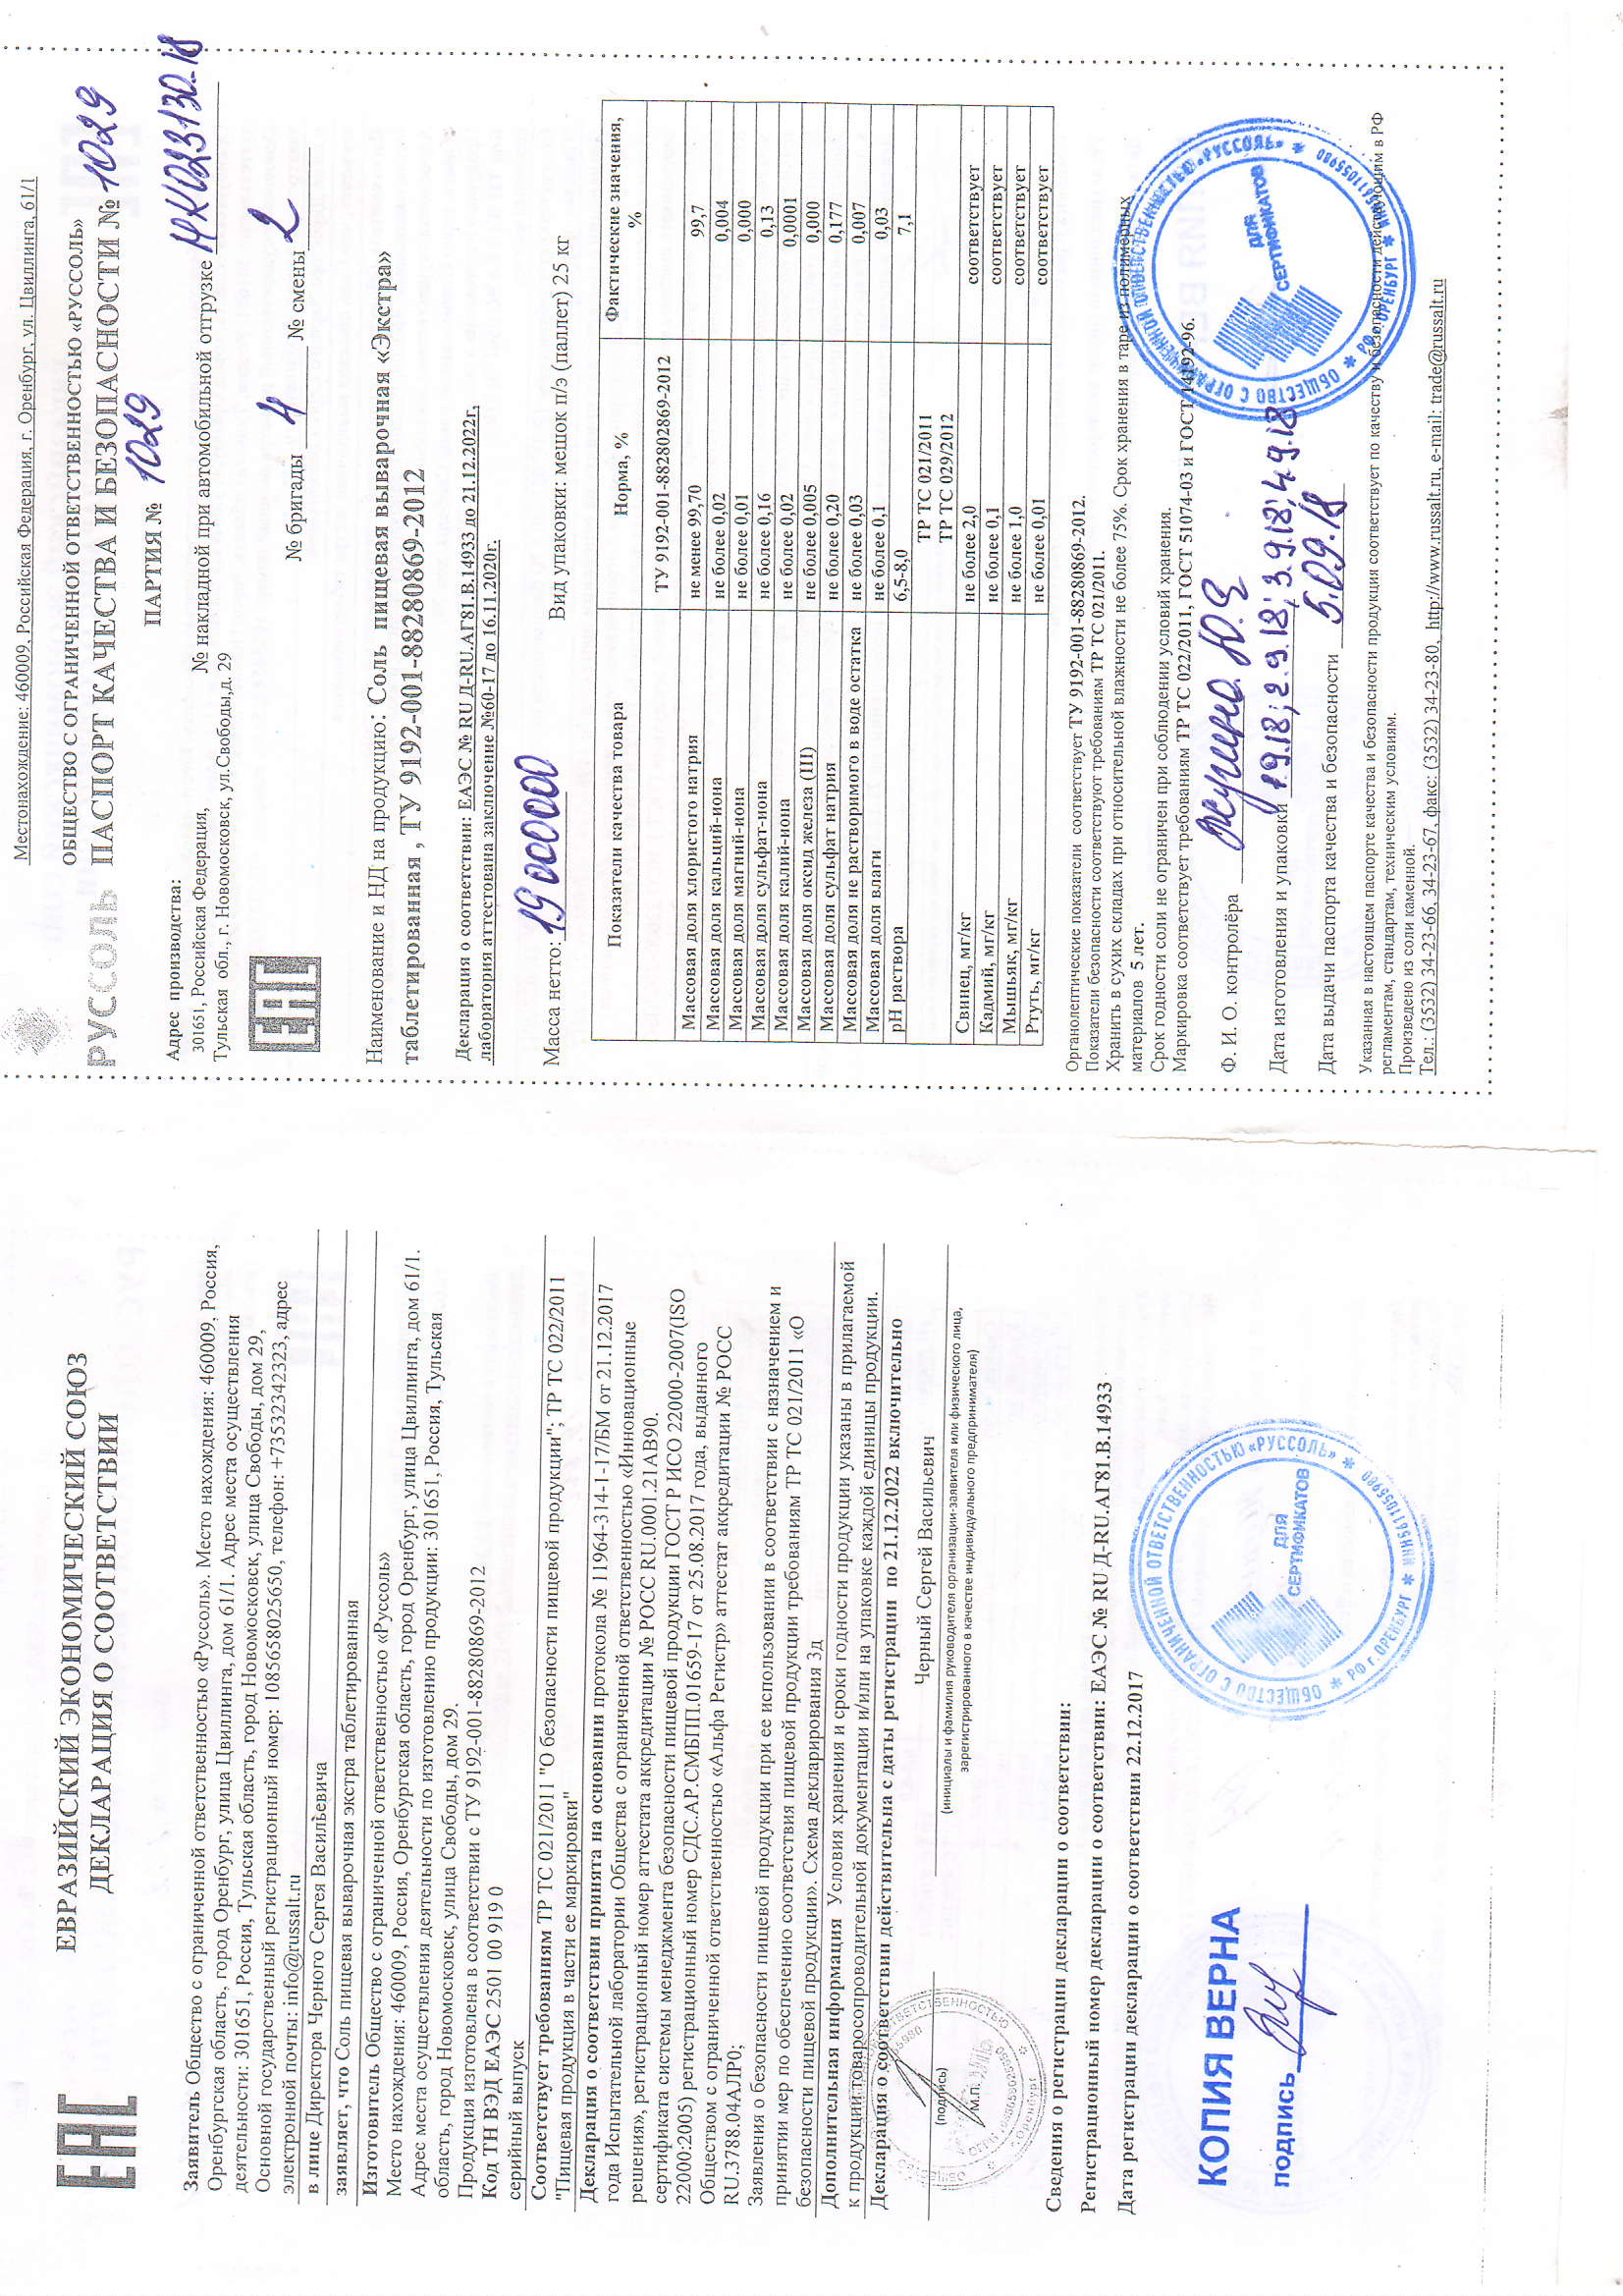 ЕВРАЗИЙСКИЙ ЭКОНОМИЧЕСКИЙ СОЮЗ
ДЕКЛАРАЦИЯ О СООТВЕТСТВИИ
Заявитель Общество с ограниченной ответственностью «Руссоль». Место нахождения: 460009, Россия,
Оренбургская область, город Оренбург, улица Цвиллинга, дом 61/1. Адрес места осуществления
деятельности: 301651, Россия, Тульская область, город Новомосковск, улица Свободы, дом 29,
Основной государственный регистрационный номер: 1085658025650, телефон: +73532342323, адрес
электронной почты: info@russalt.ru
в лице Директора Черного Сергея Васильевича
заявляет, что Соль пищевая выварочная экстра таблетированная
Изготовитель Общество с ограниченной ответственностью «Руссоль»
Место нахождения: 460009, Россия, Оренбургская область, город Оренбург, улица Цвиллинга, дом 61/1.
Адрес места осуществления деятельности по изготовлению продукции: 301651, Россия, Тульская
область, город Новомосковск, улица Свободы, дом 29.
Продукция изготовлена в соответствии с ТУ 9192-001-88280869-2012
Код ТН ВЭД ЕАЭС 2501 00 919 0
серийный выпуск
Соответствует требованиям ТР ТС 021/2011 "О безопасности пищевой продукции"; ТР ТС 022/2011
"Пищевая продукция в части ее маркировки"
Декларация о соответствии принята на основании протокола № 11964-314-1-17/БМ от 21.12.2017
года Испытательной лаборатории Общества с ограниченной ответственностью «Инновационные
решения», регистрационный номер аттестата аккредитации № РОСС RU.0001.21АВ90.
сертификата системы менеджмента безопасности пищевой продукции ГОСТ Р ИСО 22000-2007(ISO
22000:2005) регистрационный номер СДС.АР.СМБПП.01659-17 от 25.08.2017 года, выданного
Обществом с ограниченной ответственностью «Альфа Регистр» аттестат аккредитации № РОСС
RU.3788.04АЛР0;
Заявления о безопасности пищевой продукции при ее использовании в соответствии с назначением и
принятии мер по обеспечению соответствия пищевой продукции требованиям ТР ТС 021/2011 «О
безопасности пищевой продукции». Схема декларирования 3д
Дополнительная информация Условия хранения и сроки годности продукции указаны в прилагаемой
к продукции товаросопроводительной документации и/или на упаковке каждой единицы продукции.
Декларация о соответствии действительна с даты регистрации по 21.12.2022 включительно
Черный Сергей Васильевич
(подпись)
М.П.
(инициалы и фамилия руководителя организации-заявителя или физического лица,
зарегистрированного в качестве индивидуального предпринимателя)
Сведения о регистрации декларации о соответствии:
Регистрационный номер декларации о соответствии: ЕАЭС № RU Д-RU.АГ81.В.14933
Дата регистрации декларации о соответствии 22.12.2017
КОПИЯ ВЕРНА
подпись
ОБЩЕСТВО С ОГРАНИЧЕННОЙ ОТВЕТСТВЕННОСТЬЮ «РУССОЛЬ»
РФ г.ОРЕНБУРГ * ИНН5611055980
ДЛЯ
СЕРТИФИКАТОВ
Местонахождение: 460009, Российская Федерация, г. Оренбург, ул. Цвиллинга, 61/1
ОБЩЕСТВО С ОГРАНИЧЕННОЙ ОТВЕТСТВЕННОСТЬЮ «РУССОЛЬ»
РУССОЛЬ
ПАСПОРТ КАЧЕСТВА И БЕЗОПАСНОСТИ № 1029
ПАРТИЯ № 1029
Адрес производства:
301651, Российская Федерация,
Тульская обл., г. Новомосковск, ул.Свободы,д. 29
№ накладной при автомобильной отгрузке
№ бригады 4 № смены 2
Наименование и НД на продукцию: Соль пищевая выварочная «Экстра»
таблетированная , ТУ 9192-001-88280869-2012
Декларация о соответствии: ЕАЭС № RU Д-RU.АГ81.В.14933 до 21.12.2022г,
лаборатория аттестована заключение №60-17 до 16.11.2020г.
Масса нетто: 19 000000 Вид упаковки: мешок п/э (паллет) 25 кг
Показатели качества товара Норма, % Фактические значения, %
ТУ 9192-001-882802869-2012
Массовая доля хлористого натрия не менее 99,70 99,7
Массовая доля кальций-иона не более 0,02 0,004
Массовая доля магний-иона не более 0,01 0,000
Массовая доля сульфат-иона не более 0,16 0,13
Массовая доля калий-иона не более 0,02 0,0001
Массовая доля оксид железа (III) не более 0,005 0,000
Массовая доля сульфат натрия не более 0,20 0,177
Массовая доля не растворимого в воде остатка не более 0,03 0,007
Массовая доля влаги не более 0,1 0,03
рН раствора 6,5-8,0 7,1
ТР ТС 021/2011
ТР ТС 029/2012
Свинец, мг/кг не более 2,0 соответствует
Кадмий, мг/кг не более 0,1 соответствует
Мышьяк, мг/кг не более 1,0 соответствует
Ртуть, мг/кг не более 0,01 соответствует
Органолептические показатели соответствует ТУ 9192-001-88280869-2012.
Показатели безопасности соответствуют требованиям ТР ТС 021/2011.
Хранить в сухих складах при относительной влажности не более 75%. Срок хранения в таре из полимерных
материалов 5 лет.
Срок годности соли не ограничен при соблюдении условий хранения.
Маркировка соответствует требованиям ТР ТС 022/2011, ГОСТ 51074-03 и ГОСТ 14192-96.
Ф. И. О. контролёра
Дата изготовления и упаковки 1.9.18; 2.9.18; 3.9.18; 4.9.18
Дата выдачи паспорта качества и безопасности 5.09.18
Указанная в настоящем паспорте качества и безопасности продукция соответствует по качеству и безопасности действующим в РФ
регламентам, стандартам, техническим условиям.
Произведено из соли каменной.
Тел.: (3532) 34-23-66, 34-23-67, факс: (3532) 34-23-80, http://www.russalt.ru, e-mail: trade@russalt.ru
ОБЩЕСТВО С ОГРАНИЧЕННОЙ ОТВЕТСТВЕННОСТЬЮ «РУССОЛЬ»
РФ г.ОРЕНБУРГ * ИНН5611055980
ДЛЯ
СЕРТИФИКАТОВ